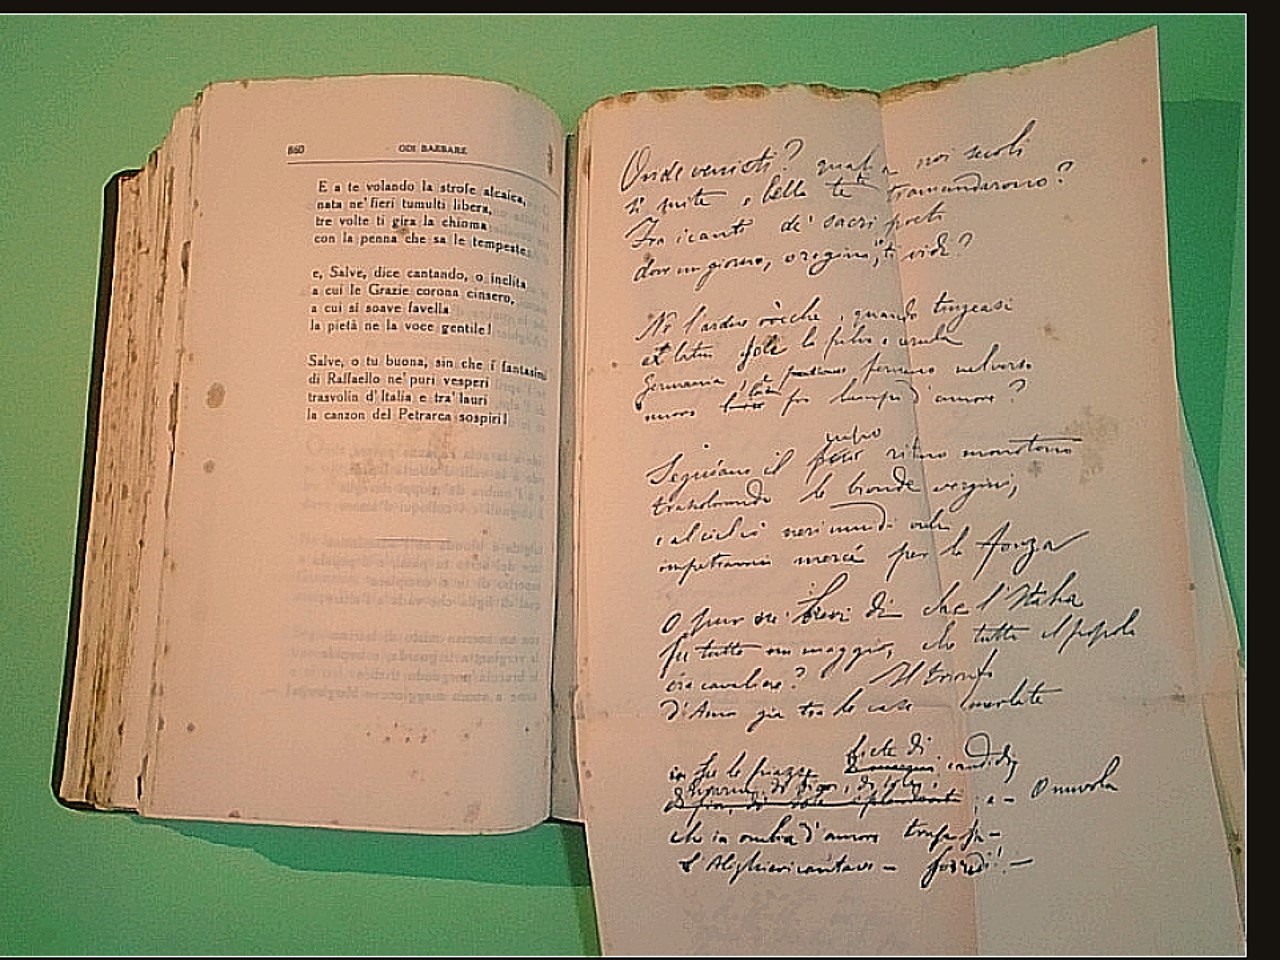 860 ODI BARBARE
E a te volando la strofe alcaica,
nata ne' fieri tumulti libera,
tre volte ti gira la chioma
con la penna che sa le tempeste:
e, Salve, dice cantando, o inclita
a cui le Grazie corona cinsero,
a cui sì soave favella
la pietà ne la voce gentile!
Salve, o tu buona, sin che i fantasimi
di Raffaello ne' puri vesperi
trasvolin d'Italia e tra' lauri
la canzon del Petrarca sospiri!
Onde venisti? quali a noi secoli
sì mite e bella te tramandarono?
Fra i canti de' sacri poeti
dove un giorno, o regina, ti vidi?
Ne l'ardue ròcche, quando tingeasi
al latin sole la fulva e cerula
Germania, e
nuovo fra lampi d'amore?
Seguíano il cupo ritmo monotono
trascolorando le bionde vergini,
e al ciel co' neri umidi occhi
impetravan mercé per la forza
O pur ne i brevi dì che l'Italia
fu tutta un maggio, che tutto il popolo
era cavaliere? Il trionfo
d'Amor gía tra le case merlate
in su le piazze liete di candidi
marmi, di fiori, di sole; e - O nuvola
che in ombra d'amore trapassi, -
L'Alighieri cantava - sorridi! -